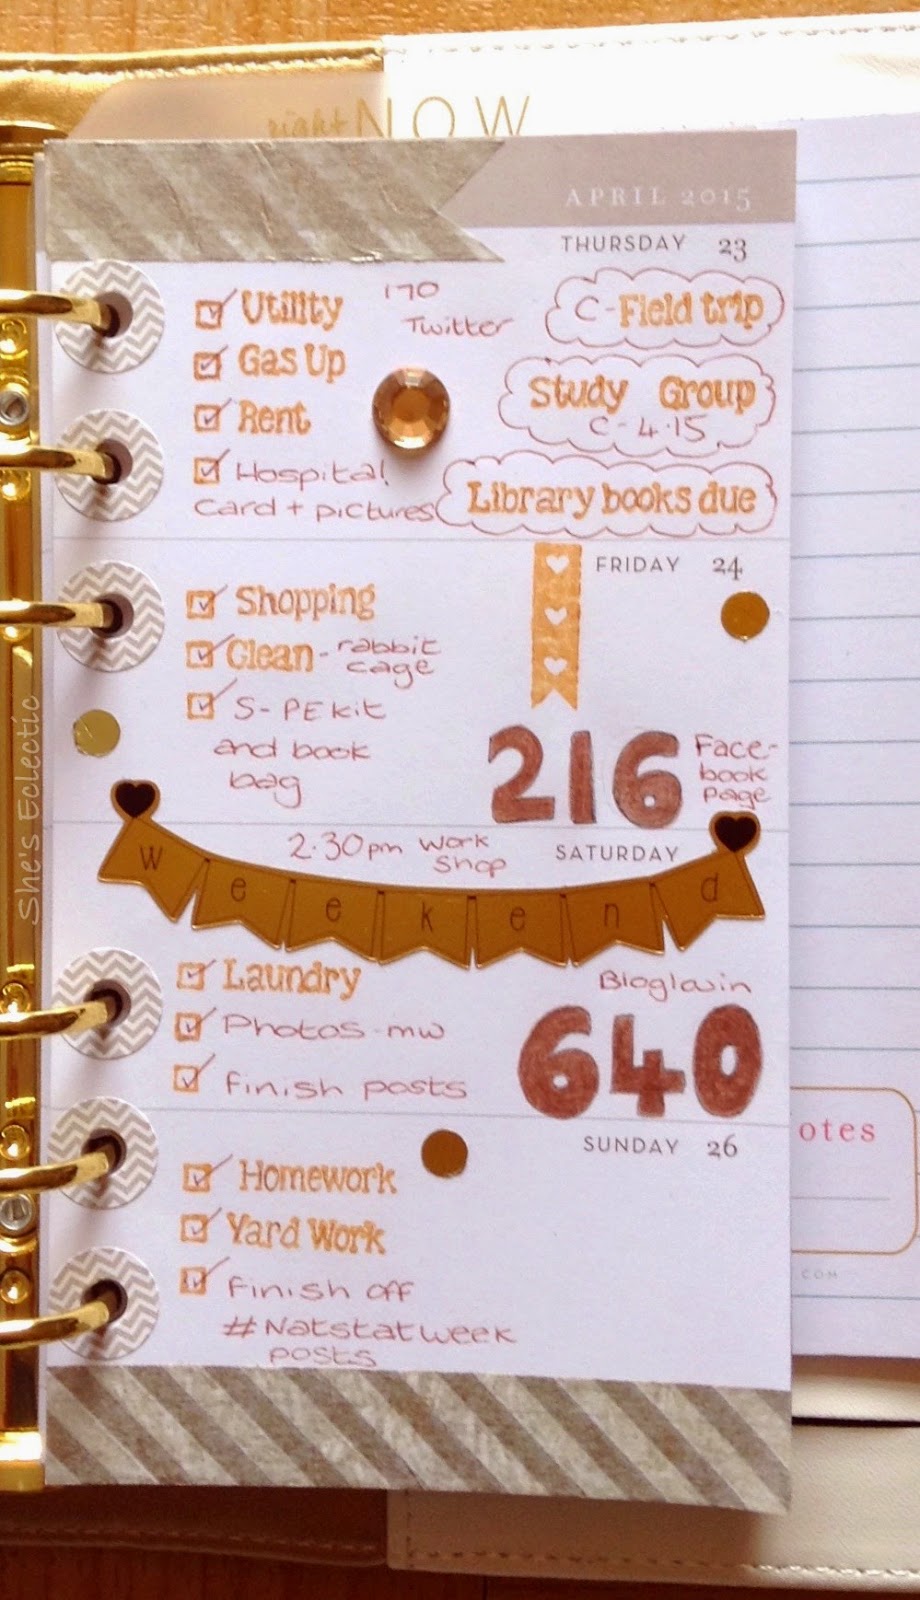 right NOW
APRIL 2015
THURSDAY 23
Utility
170
Twitter
C - Field trip
Gas Up
Study Group
C - 4.15
Rent
Hospital
card + pictures
Library books due
FRIDAY 24
Shopping
Clean - rabbit
cage
S - PE kit
and book
bag
216
Face-
book
page
2.30pm work
shop
SATURDAY
weekend
Laundry
Bloglovin
Photos - mw
640
finish posts
SUNDAY 26
Homework
Yard Work
finish off
#Natstatweek
posts
otes
.COM
She's Eclectic